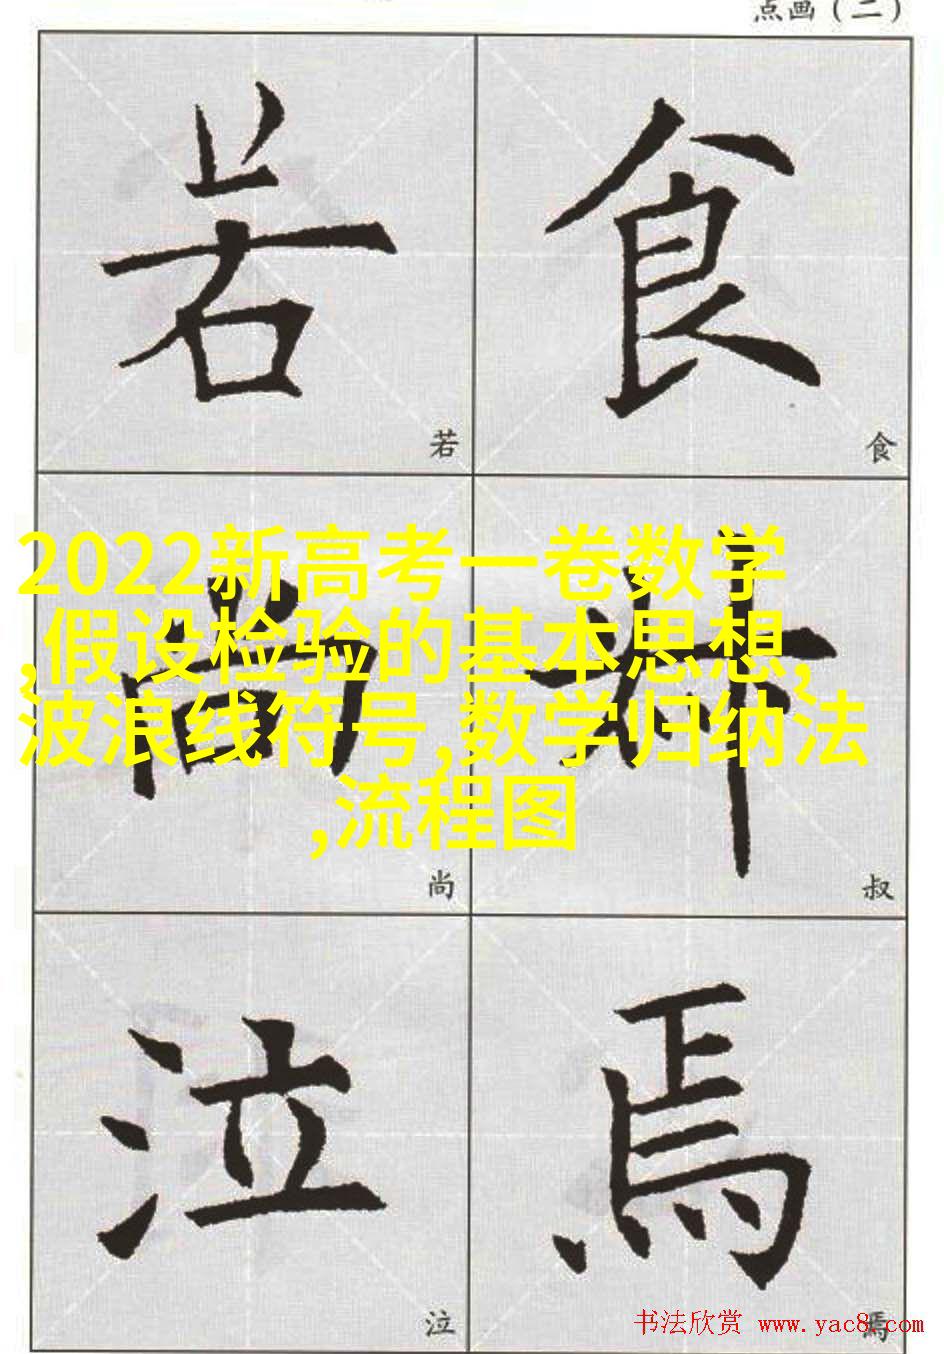 点画（二）
若 食
若 食
2022新高考一卷数学
,假设检验的基本思想,
波浪线符号,数学归纳法
,流程图
尚 叔
尚 叔
泣 焉
泣 焉
书法欣赏 www.yac8.com